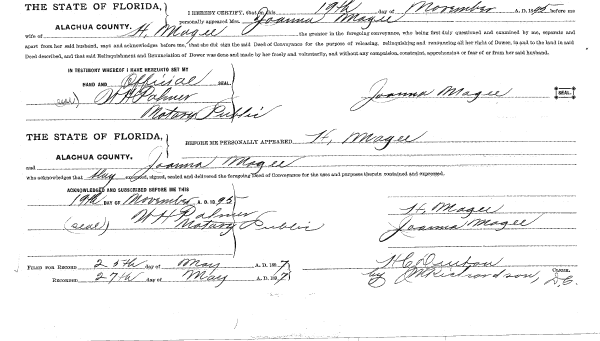 THE STATE OF FLORIDA, } I HEREBY CERTIFY, that on this 19th day of November A. D. 1895 before me
ALACHUA COUNTY. personally appeared Mrs. Joanna Magee
wife of H. Magee the grantor in the foregoing conveyance, who being first duly questioned and examined by me, separate and
apart from her said husband, says and acknowledges before me, that she did sign the said Deed of Conveyance for the purpose of releasing, relinquishing and renouncing all her right of Dower, in and to the land in said
Deed described, and that said Relinquishment and Renunciation of Dower was done and made by her freely and voluntarily, and without any compulsion, constraint, apprehension or fear of or from her said husband.
IN TESTIMONY WHEREOF I HAVE HEREUNTO SET MY
HAND AND Official SEAL
(seal) W H Palmer Joanna Magee SEAL.
Notary Public
THE STATE OF FLORIDA, } BEFORE ME PERSONALLY APPEARED H. Magee
ALACHUA COUNTY.
and Joanna Magee
who acknowledges that they executed, signed, sealed and delivered the foregoing Deed of Conveyance for the uses and purposes therein contained and expressed.
ACKNOWLEDGED AND SUBSCRIBED BEFORE ME THIS
19th DAY OF November A. D. 1895
W H Palmer H. Magee
(seal) Notary Public Joanna Magee
FILED FOR RECORD 25th day of May A. D. 1897 H C Denton CLERK.
RECORDED 27th day of May A. D. 1897 by J M Richardson, D.C.